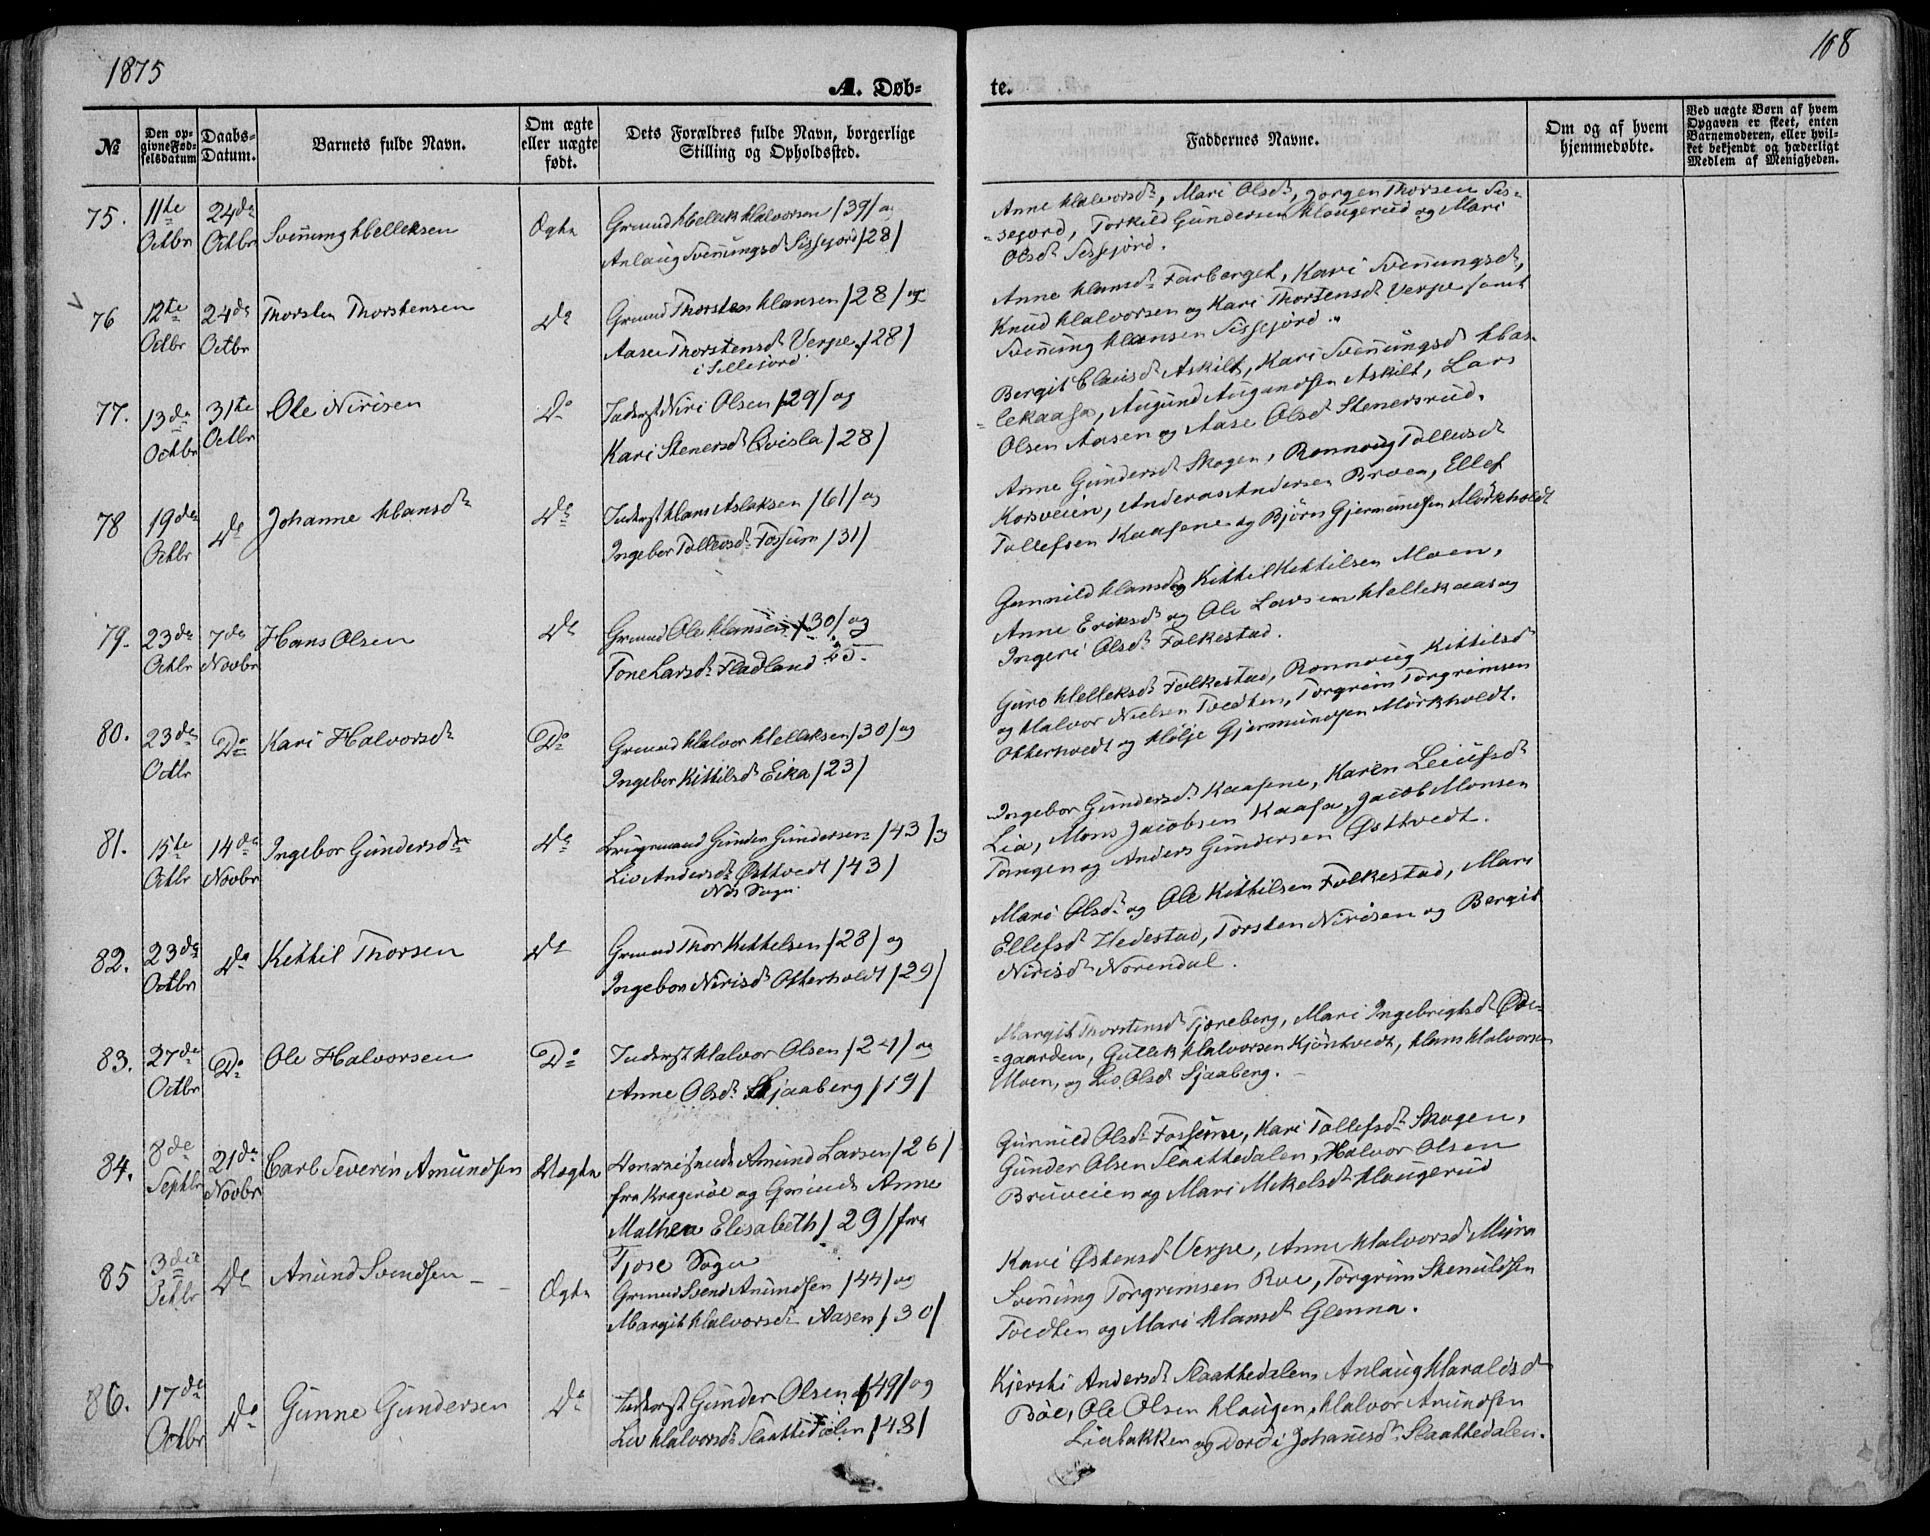 1875
168
A. Døb-
te.
№
Den op-
givne Fød-
selsdatum
Daabs-
Datum.
Barnets fulde Navn.
Om ægte
eller uægte
født.
Dets Forældres fulde Navn, borgerlige
Stilling og Opholdssted.
Faddernes Navne.
Om og af hvem
hjemmedøbte.
Ved uægte Børn af hvem
Opgaven er skeet, enten
Barnemoderen, eller hvil-
ket bekjendt og hæderligt
Medlem af Menigheden.
75.
11te
Octbr
24de
Octbr
Svenung Helleksen
Ægte
Grmand Hellek Halvorsen /39/ og
Anlaug Svenungsd Sissejord /28/
Anne Halvorsd, Mari Olsd, Jorgen Thorsen Sis-
-sejord, Torkild Gundersen Haugerud og Mari
Olsd Sissejord.
76
12te
Octbr
24de
Octbr
Thorsten Thorstensen
Do
Grmand Thorsten Hansen /28/ og
Aase Thorstensd Verpe /28/
i Sillejord
Anne Hansd Farberget, Kari Svenungsd,
Knud Halvorsen og Kari Thorstensd Verpe samt
Svenung Hansen Sissejord.
77.
13de
Octbr
31te
Octbr
Ole Nirisen
Do
Inderst Niri Olsen /29/ og
Kari Stenersd Qvisla /28/
Bergit Clausd Askilt, Kari Svenungsd Has-
-lekaasa, Augund Augundsen Askilt, Lars
Olsen Aasen og Aase Olsd Stenersrud.
78
19de
Octbr
Do
Johanne Hansd
Do
Inderst Hans Aslaksen /61/ og
Ingebor Tollevsd Fossum /31/
Anne Gundersd Skogen, Ronnoug Tollevsd
Korsveien, Anderas Andersen Broen, Ellef
Tollefsen Kaasene og Bjørn Gjermundsen Mørkholdt
79.
23de
Octbr
7de
Novbr
Hans Olsen
Do
Grmand Ole Hansen /30/ og
Tone Larsd Fladland 25.
Gunnild Hansd og Kittil Kittilsen Moen,
Anne Eriksd og Ole Larsen Hellekaas og
Ingeri Olsd Folkestad.
80.
23de
Octbr
Do
Kari Halvorsd
Do
Grmand Halvor Helleksen /30/ og
Ingebor Kittilsd Eika /23/
Guro Helleksd Folkestad, Ronnoug Kittilsd
og Halvor Nielsen Tvedten, Torgrim Torgrimsen
Otterholdt og Hølje Gjermundsen Mørkholdt.
81.
15te
Octbr
14de
Novbr
Ingebor Gundersd
Do
Brugmand Gunder Gundersen /43/ og
Liv Andersd Østtvedt /43/
Næs Sogn
Ingebor Gundersd Kaasene, Karen Leiufsd
Lia, Mons Jacobsen Kaasa, Jacob Monsen
Tangen og Anders Gundersen Østtvedt.
82.
23de
Octbr
Do
Kittil Thorsen
Do
Grmand Thor Kittelsen /28/ og
Ingebor Nirisd Otterholdt /29/
Mari Olsd og Ole Kittilsen Folkestad, Mari
Ellefsd Hedestad, Torsten Nirisen og Bergit
Nirisd Norendal.
83.
27de
Octbr
Do
Ole Halvorsen
Do
Inderst Halvor Olsen /24/ og
Anne Olsd Sjaaberg /19/
Margit Thorstensd Tjæreberg, Mari Ingebrigtsd Øde-
-gaarden, Gullek Halvorsen Kjøntvedt, Hans Halvorsen
Moen, og Liv Olsd Sjaaberg.
84.
8de
Septbr
21de
Novbr
Carl Severin Amundsen
Uægte
Amund Larsen /26/
fra Kragerøe og Anne
Mathea Elisabeth /29/ fra
Tjose Sogn
Gunnild Olsd Fossum, Kari Tollefsd Skogen,
Gunder Olsen Slaattedalen, Halvor Olsen
Bruveien og Mari Mikelsd Haugerud
85
3die
Octbr
Do
Anund Svendsen
Ægte
Grmand Svend Anundsen /44/ og
Margit Halvorsd Aasen /30/
Kari Østensd Verpe, Anne Halvorsd Myra
Svenung Torgrimsen Roe, Torgrim Stenuldsen
Tvedten og Mari Hansd Glenna.
86.
17de
Octbr
Do
Gunne Gundersen
Do
Inderst Gunder Olsen /49/ og
Liv Halvorsd Slaattedalen /48/
Kjersti Andersd Slaattedalen, Anlaug Haraldsd
Bøe, Ole Olsen Haugen, Halvor Anundsen
Liabakken og Dordi Johannesd Slaattedalen.